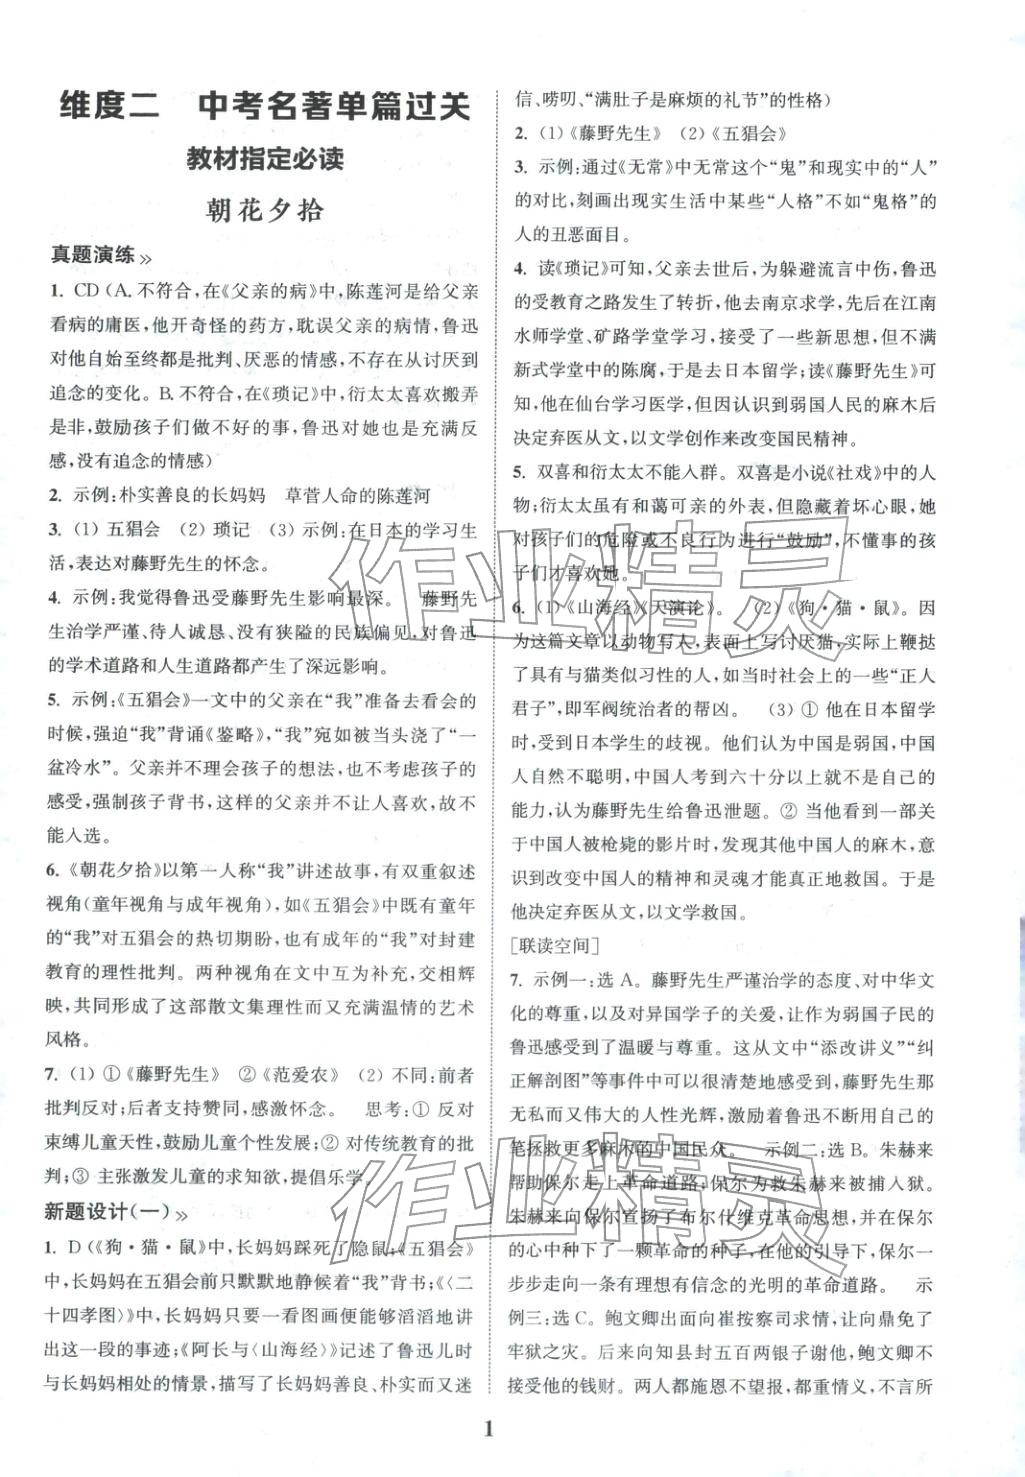 维度二　中考名著单篇过关
教材指定必读
朝花夕拾
真题演练»
1. CD（A.不符合，在《父亲的病》中，陈莲河是给父亲
看病的庸医，他开奇怪的药方，耽误父亲的病情，鲁迅
对他自始至终都是批判、厌恶的情感，不存在从讨厌到
追念的变化。B.不符合，在《琐记》中，衍太太喜欢搬弄
是非，鼓励孩子们做不好的事，鲁迅对她也是充满反
感，没有追念的情感）
2. 示例：朴实善良的长妈妈　草菅人命的陈莲河
3. （1）五猖会　（2）琐记　（3）示例：在日本的学习生
活，表达对藤野先生的怀念。
4. 示例：我觉得鲁迅受藤野先生影响最深。　藤野先
生治学严谨、待人诚恳、没有狭隘的民族偏见，对鲁迅
的学术道路和人生道路都产生了深远影响。
5. 示例：《五猖会》一文中的父亲在“我”准备去看会
的时候，强迫“我”背诵《鉴略》，“我”宛如被当头浇了“一
盆冷水”。父亲并不理会孩子的想法，也不考虑孩子的
感受，强制孩子背书，这样的父亲并不让人喜欢，故不
能入选。
6.《朝花夕拾》以第一人称“我”讲述故事，有双重叙述
视角（童年视角与成年视角），如《五猖会》中既有童年
的“我”对五猖会的热切期盼，也有成年的“我”对封建
教育的理性批判。两种视角在文中互为补充，交相辉
映，共同形成了这部散文集理性而又充满温情的艺术
风格。
7. （1）①《藤野先生》　②《范爱农》　（2）不同：前者
批判反对；后者支持赞同，感激怀念。　思考：① 反对
束缚儿童天性，鼓励儿童个性发展；② 对传统教育的批
判；③ 主张激发儿童的求知欲，提倡乐学。
新题设计（一）»
1. D（《狗·猫·鼠》中，长妈妈踩死了隐鼠；《五猖会》
中，长妈妈在五猖会前只默默地静候着“我”背书；《〈二
十四孝图〉》中，长妈妈只要一看图画就能够滔滔地讲
出这一段的事迹；《阿长与〈山海经〉》记述了鲁迅儿时
与长妈妈相处的情景，描写了长妈妈善良、朴实而又迷
信、唠叨、“满肚子是麻烦的礼节”的性格）
2. （1）《藤野先生》　（2）《五猖会》
3. 示例：通过《无常》中无常这个“鬼”和现实中的“人”
的对比，刻画出现实生活中某些“人格”不如“鬼格”的
人的丑恶面目。
4. 读《琐记》可知，父亲去世后，为躲避流言中伤，鲁迅
的受教育之路发生了转折，他去南京求学，先后在江南
水师学堂、矿路学堂学习，接受了一些新思想，但不满
新式学堂中的陈腐，于是去日本留学；读《藤野先生》可
知，他在仙台学习医学，但因认识到弱国人民的麻木后
决定弃医从文，以文学创作来改变国民精神。
5. 双喜和衍太太不能入群。双喜是小说《社戏》中的人
物；衍太太虽有和蔼可亲的外表，但隐藏着坏心眼，她
对孩子们的危险或不良行为进行“鼓励”，不懂事的孩
子们才喜欢她。
6. （1）《山海经》《天演论》。　（2）《狗·猫·鼠》。因
为这篇文章以动物写人，表面上写讨厌猫，实际上鞭挞
了具有与猫类似习性的人，如当时社会上的一些“正人
君子”，即军阀统治者的帮凶。　（3）① 他在日本留学
时，受到日本学生的歧视。他们认为中国是弱国，中国
人自然不聪明，中国人考到六十分以上就不是自己的
能力，认为藤野先生给鲁迅泄题。② 当他看到一部关
于中国人被枪毙的影片时，发现围观的中国人的麻木，意
识到改变中国人的精神和灵魂才能真正地救国。于是
他决定弃医从文，以文学救国。
［联读空间］
7. 示例一：选 A。藤野先生严谨治学的态度、对中华文
化的尊重，以及对异国学子的关爱，让作为弱国子民的
鲁迅感受到了温暖与尊重。这从文中“添改讲义”“纠
正解剖图”等事件中可以很清楚地感受到，藤野先生那
无私而又伟大的人性光辉，激励着鲁迅不断用自己的
笔拯救更多麻木的中国民众。　示例二：选 B。朱赫来
帮助保尔走上革命道路，保尔为救朱赫来被捕入狱。
朱赫来向保尔宣扬了布尔什维克革命思想，并在保尔
的心中种下了一颗革命的种子，在他的引导下，保尔一
步步走向一条有理想有信念的光明的革命道路。　示
例三：选 C。鲍文卿出面向崔按察司求情，让向鼎免了
牢狱之灾。后来向知县封五百两银子谢他，鲍文卿不
接受他的钱财。两人都施恩不望报，都重情义，不言所
1
作业精灵
作业精灵